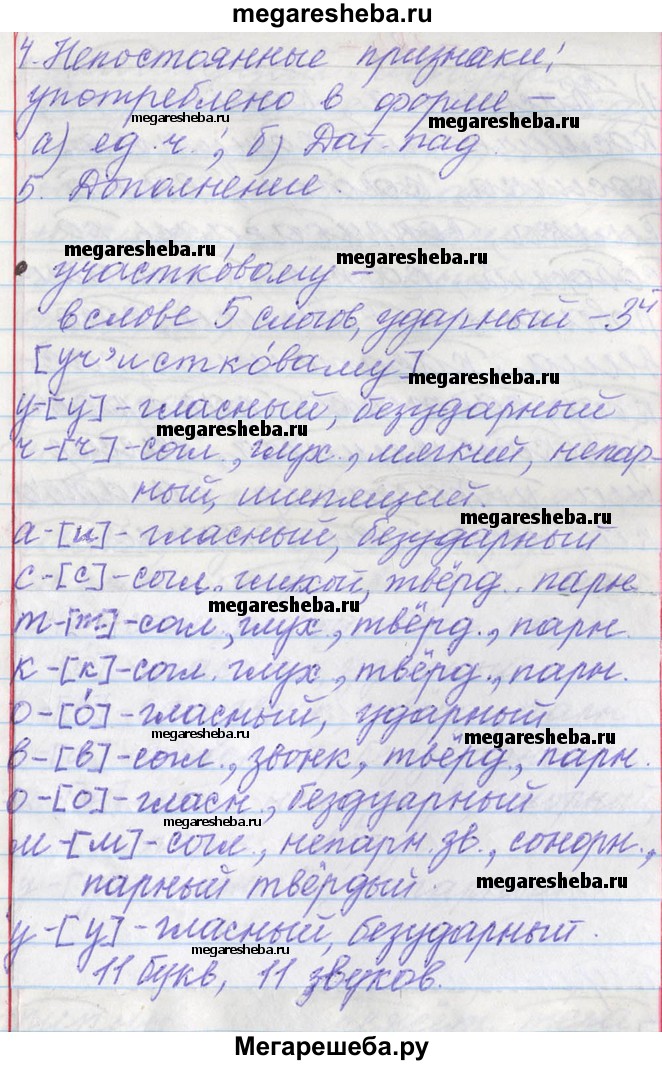 megaresheba.ru
4. Непостоянные признаки:
употреблено в форме –
megaresheba.ru megaresheba.ru
а) ед. ч.; б) Дат. пад.
5. Дополнение.
megaresheba.ru megaresheba.ru
участко́вому –
в слове 5 слогов, ударный – 3й
[уч'истко́ваму] megaresheba.ru
у-[у]-гласный, безударный
megaresheba.ru
ч-[ч']-согл., глух., мягкий, непар-
ный, шипящий.
megaresheba.ru
а-[и]-гласный, безударный
с-[с]-согл., глухой, твёрд., парн.
megaresheba.ru
т-[т]-согл., глух., твёрд., парн.
к-[к]-согл. глух., твёрд., парн.
о-[о́]-гласный, ударный
megaresheba.ru megaresheba.ru
в-[в]-согл., звонк., твёрд., парн.
о-[о]-гласн., бездуарный
megaresheba.ru
м-[м]-согл., непарн. зв., сонорн.,
парный твёрдый. megaresheba.ru
у-[у]-гласный, безударный.
megaresheba.ru
11 букв, 11 звуков.
Мегарешеба.ру